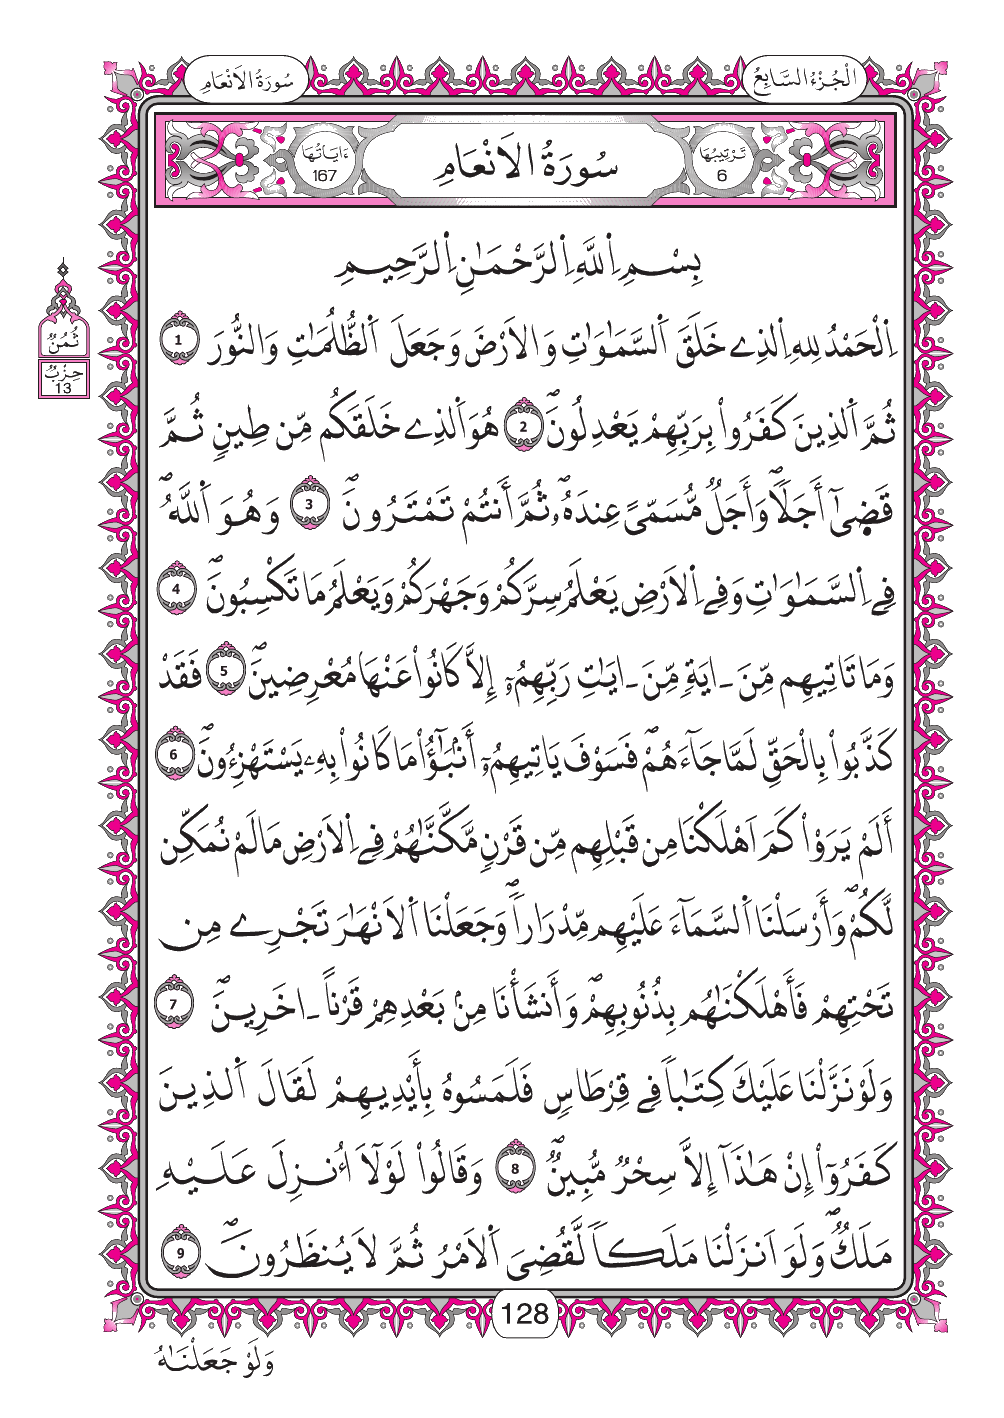 الْجُزْءُ السَّابِعُ
سُورَةُ الَانْعَامِ
تَرْتِيبُهَا
6
سُورَةُ الَانْعَامِ
ءَايَاتُهَا
167
بِسْمِ اِ۬للَّهِ اِ۬لرَّحْمَٰنِ اِ۬لرَّحِيمِ
اِ۬لْحَمْدُ لِلهِ اِ۬لذِے خَلَقَ اَ۬لسَّمَٰوَٰتِ وَالَارْضَ وَجَعَلَ اَ۬لظُّلُمَٰتِ وَالنُّورَ 1
ثُمَّ اَ۬لذِينَ كَفَرُواْ بِرَبِّهِمْ يَعْدِلُونَۖ 2 هُوَ اَ۬لذِے خَلَقَكُم مِّن طِينٍ ثُمَّ
قَضٜىٰٓ أَجَلاٗۖ وَأَجَلٞ مُّسَمّيً عِندَهُۥۖ ثُمَّ أَنتُمْ تَمْتَرُونَۖ 3 وَهُوَ اَ۬للَّهُۖ
فِے اِ۬لسَّمَٰوَٰتِ وَفِے اِ۬لَارْضِ يَعْلَمُ سِرَّكُمْ وَجَهْرَكُمْ وَيَعْلَمُ مَا تَكْسِبُونَۖ 4
ثُمُنٌ
حِزْبٌ
13
وَمَا تَاتِيهِم مِّنَ ـ ايَةٖ مِّنَ ـ ايَٰتِ رَبِّهِمُۥٓ إِلَّا كَانُواْ عَنْهَا مُعْرِضِينَۖ 5 فَقَدْ
كَذَّبُواْ بِالْحَقِّ لَمَّا جَآءَهُمْۖ فَسَوْفَ يَاتِيهِمُۥٓ أَنۢبَٰٓؤُاْ مَا كَانُواْ بِهِۦ يَسْتَهْزِءُونَۖ 6
أَلَمْ يَرَوْاْ كَمَ اَهْلَكْنَا مِن قَبْلِهِم مِّن قَرْنٖ مَّكَّنَّٰهُمْ فِے اِ۬لَارْضِ مَا لَمْ نُمَكِّن
لَّكُمْۖ وَأَرْسَلْنَا اَ۬لسَّمَآءَ عَلَيْهِم مِّدْرَاراٗۖ وَجَعَلْنَا اَ۬لَانْهَٰرَ تَجْرِے مِن
تَحْتِهِمْ فَأَهْلَكْنَٰهُم بِذُنُوبِهِمْۖ وَأَنشَأْنَا مِنۢ بَعْدِهِمْ قَرْناً ـ اخَرِينَۖ 7
وَلَوْ نَزَّلْنَا عَلَيْكَ كِتَٰباٗ فِے قِرْطَاسٖ فَلَمَسُوهُ بِأَيْدِيهِمْ لَقَالَ اَ۬لذِينَ
كَفَرُوٓاْ إِنْ هَٰذَآ إِلَّا سِحْرٞ مُّبِينٞۖ 8 وَقَالُواْ لَوْلَآ أُنزِلَ عَلَيْهِ
مَلَكٞۖ وَلَوَ اَنزَلْنَا مَلَكاٗ لَّقُضِيَ اَ۬لَامْرُ ثُمَّ لَا يُنظَرُونَۖ 9
128
وَلَوْ جَعَلْنَٰهُ